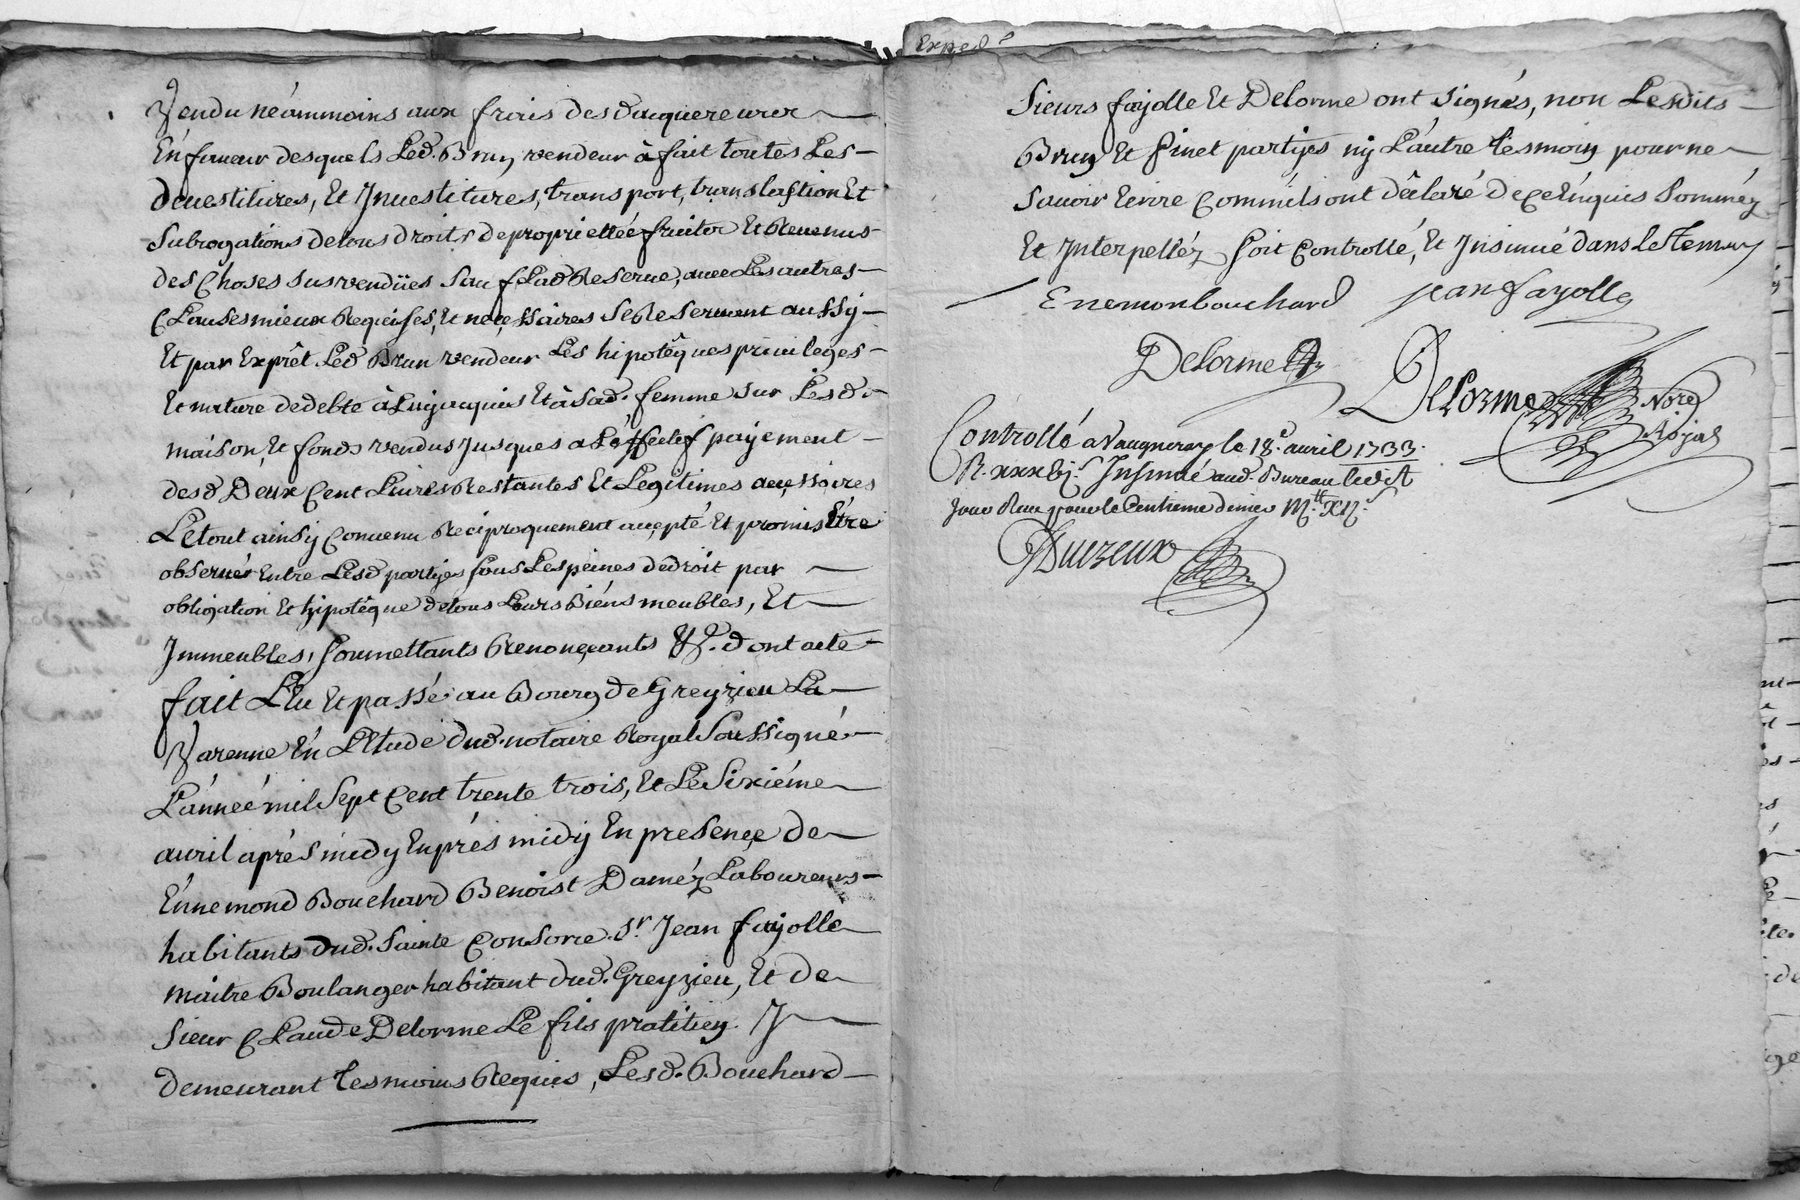 Vendu néammoins aux frais desd acquereurs
Enfaueur desquels Led. Brun vendeur à fait toutes Les
deuestitures, Et Jnuestitures, transport, translastion Et
Subrogations detous droits de proprietté fruitor Et Reuenus
des Choses susvendües Sauf Lad Reserue, auec Les autres
Clauses mieux Requises, Et neçessaires Se Reseruent aussy
Et par Exprêt Led Brun vendeur Les hipotêques priuileges
Et nature dedebte à Luy acquis Et à Sad. femme sur Lesd.
maison, Et fonds vendus Jusques a Léffectif payement
desd Deux Cent Liures Restantes Et Legitimes acçessoires
Le tout ainsy Conuenu Reciproquement acçepté Et promis Être
obserués Entre Lesd partyes sous Les peines de droit par
obligation Et hipotêque detous Leurs Biéns meubles, Et
Jmmeubles, soumettants Renonçeants &. dont acte
fait Leu Et passé au Bourg de Greyzieu La
Varenne En L'Etude dud. notaire Royal Soussigné
L'anneé mil Sept Cent trente trois, Et Le Sixiéme
auril aprés midy Enprés midy En presençe de
Énnemond Bouchard Benoist Daméz Laboureurs
habitants dud. Sainte Consorce. Sr. Jean fayolle
maitre Boulanger habitant dud. Greyzieu, Et de
Sieur Claude Delorme Le fils pratitien. J
demeurant tesmoins Requis, Lesd. Bouchard
Exped.
Sieurs fayolle Et Delorme ont signés, non Lesdits
Brun Et Pinet partyes ny L'autre tesmoin pour ne
Sauoir Ecrire Comm'ils ont déclaré de Ce Enquis Sommés
Et Jnterpelléz Soit Controllé, Et Jnsinué dans Le Tems
Enemonbouchard jean fayolle
Delorme Delorme Nore
Royal
Controllé a Vaugneray le 18e. auril 1733.
R. Insinué aud. Bureau ledit
Jour Reçu pour le Centieme denier
Duizeux